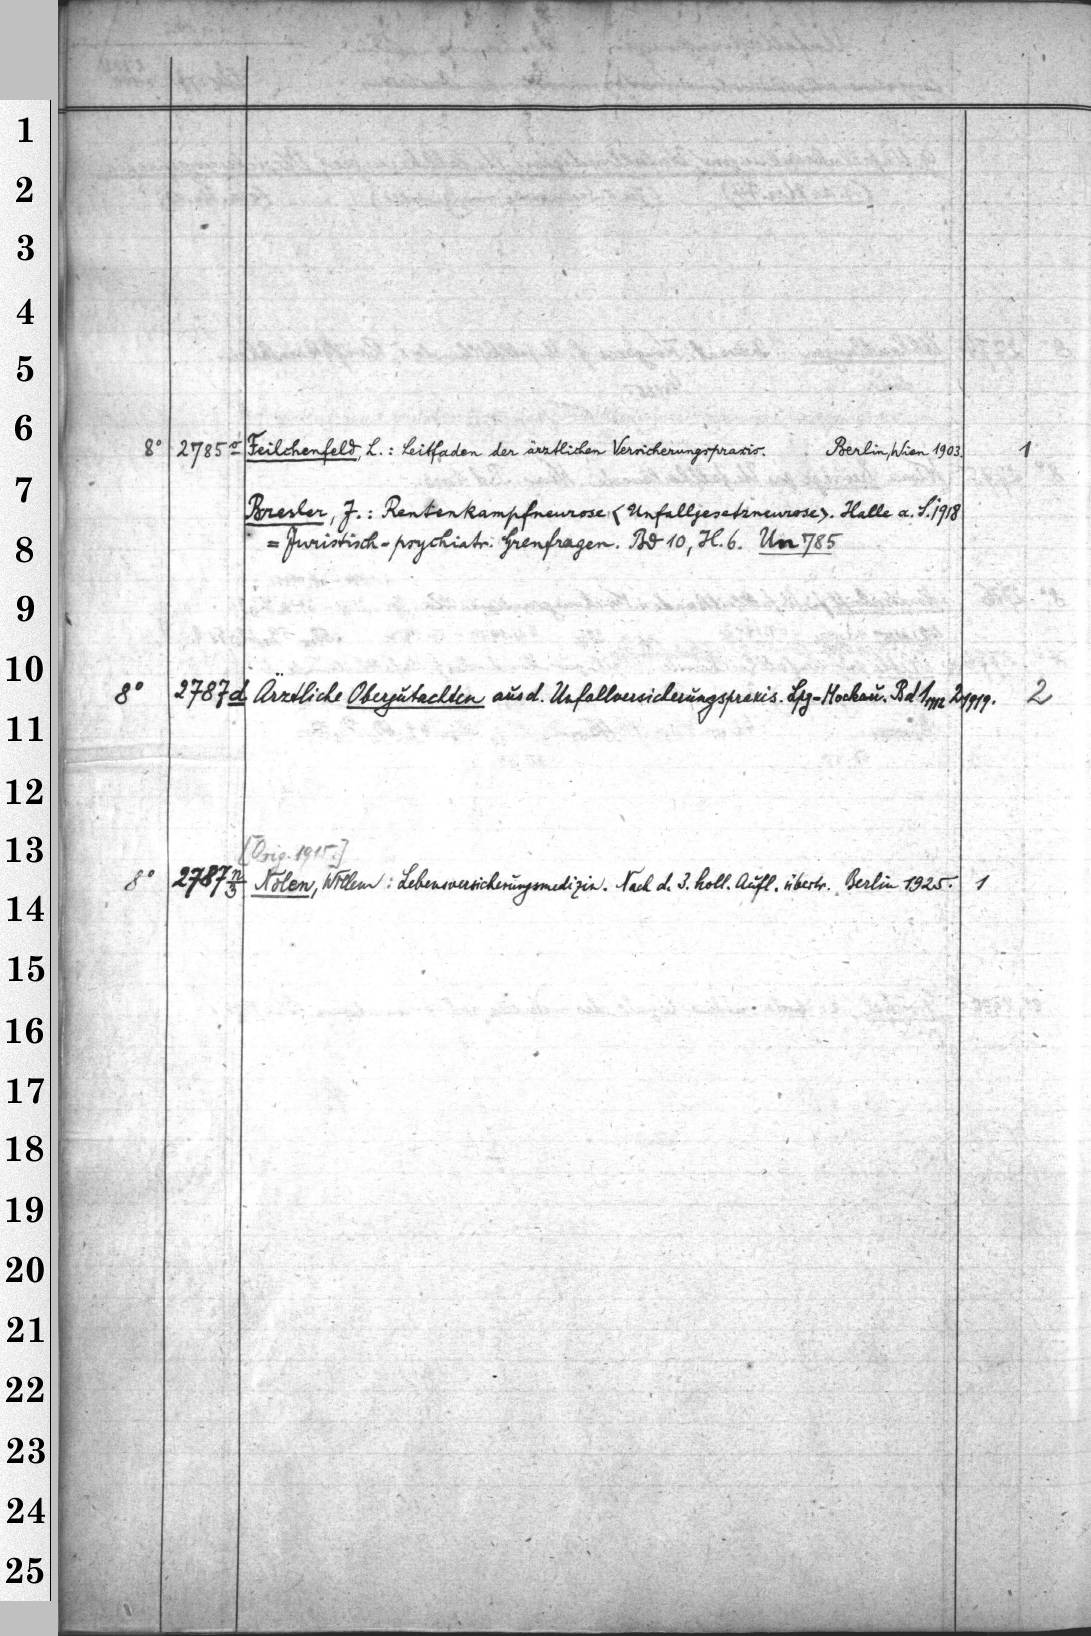 1
2
3
4
5
6
8° 2785 Feilchenfeld, L.: Leitfaden der ärztlichen Versicherungspraxis. Berlin/Wien 1903. 1
7
Bresler, J.: Rentenkampfneurose <Unfallgesetzneurose>. Halle a. S. 1918
8
= Juristisch-psychiatr. Grenfragen. Bd 10, H. 6. Un 785
9
10
8° 2787d Ärztliche Obergutachten aus d. Unfallversicherungspraxis. Lpg-Mockau. Bd 1 1912 2 1919. 2
11
12
13
[Orig. 1915.]
8° 2787 n/3 Nolen, Willem: Lebensversicherungsmedizin. Nach d. 3. holl. Aufl. übertr. Berlin 1925. 1
14
15
16
17
18
19
20
21
22
23
24
25